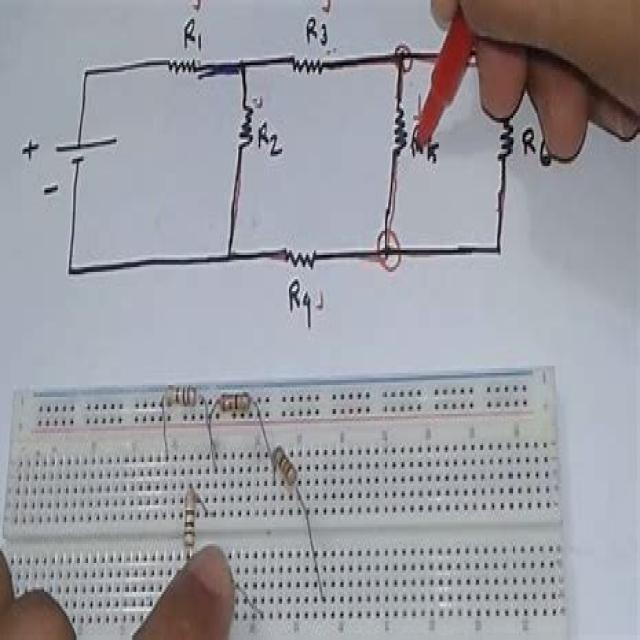 R1 R3
+ R2 R5 R6
-
R4